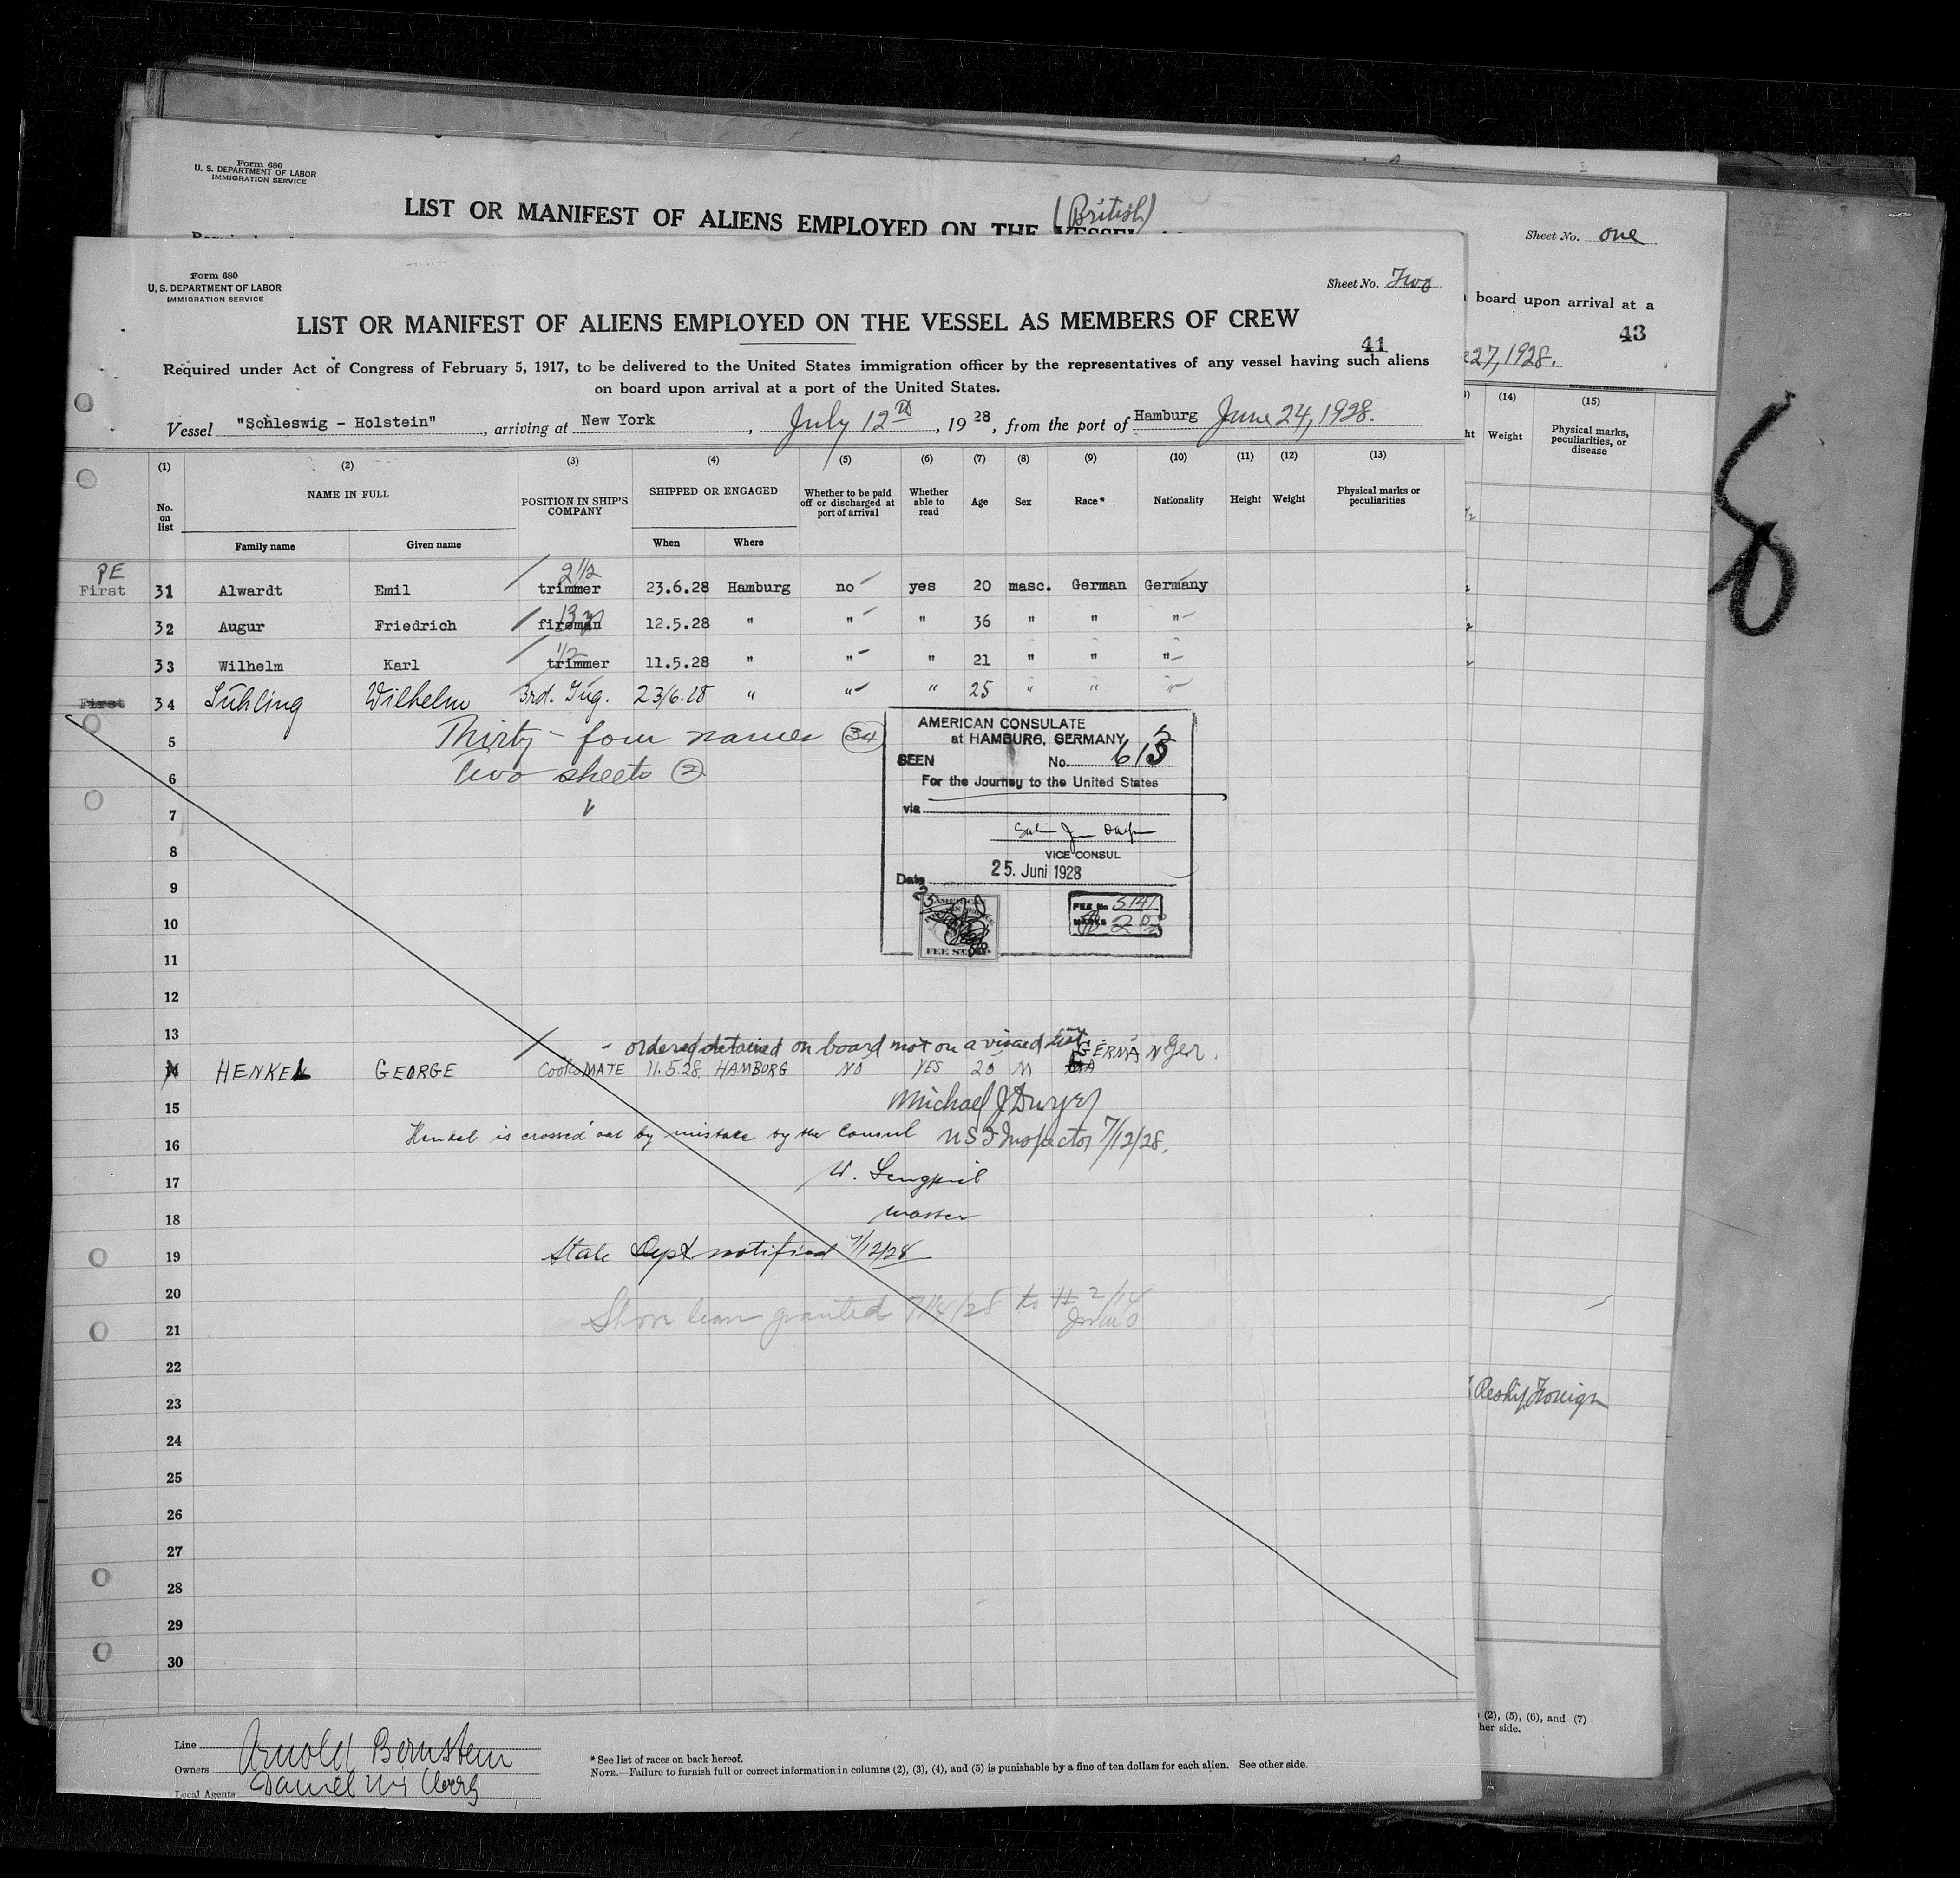 Form 680
U. S. DEPARTMENT OF LABOR
IMMIGRATION SERVICE
LIST OR MANIFEST OF ALIENS EMPLOYED ON THE VESSEL
(British)
Sheet No. one
board upon arrival at a
43
27, 1928.
(14) (15)
Weight Physical marks, peculiarities, or disease
Reship Foreign
(2), (5), (6), and (7)
her side.
Form 680
U. S. DEPARTMENT OF LABOR
IMMIGRATION SERVICE
Sheet No. Two
LIST OR MANIFEST OF ALIENS EMPLOYED ON THE VESSEL AS MEMBERS OF CREW
41
Required under Act of Congress of February 5, 1917, to be delivered to the United States immigration officer by the representatives of any vessel having such aliens
on board upon arrival at a port of the United States.
Vessel "Schleswig - Holstein", arriving at New York, July 12th, 1928, from the port of Hamburg June 24, 1928.
(1) (2) (3) (4) (5) (6) (7) (8) (9) (10) (11) (12) (13)
No. on list NAME IN FULL POSITION IN SHIP'S COMPANY SHIPPED OR ENGAGED Whether to be paid off or discharged at port of arrival Whether able to read Age Sex Race * Nationality Height Weight Physical marks or peculiarities
Family name Given name When Where
PE 2 1/2
First 31 Alwardt Emil trimmer 23.6.28 Hamburg no yes 20 masc. German Germany
32 Augur Friedrich fireman 12.5.28 " " " 36 " " "
1/2
33 Wilhelm Karl trimmer 11.5.28 " " " 21 " " "
First 34 Lühling Wilhelm 3rd. Ing. 23/6.28 " " " 25 " " "
Thirty-four names 34
5
Two sheets 2
6
7
8
9
10
11
12
13
AMERICAN CONSULATE
at HAMBURG, GERMANY
SEEN No. 615
For the Journey to the United States
via
VICE CONSUL
Date 25. Juni 1928
FEE No 5141
MARKS
FEE STAMP
- ordered detained on board not on a visaed list.
14 HENKEL GEORGE Cooks MATE 11.5.28. HAMBURG NO YES 20 M GERMAN Ger.
Michael J Dwyer
15
Henkel is crossed out by mistake by the Consul US I Inspector 7/12/28.
16
17
master
18
State Dept notified 7/12/28
19
20
Shore leave granted 7/14/28 to # 2/14
21
22
23
24
25
26
27
28
29
30
Line
Owners Arnold Bernstein
Local Agents
* See list of races on back hereof.
NOTE.—Failure to furnish full or correct information in columns (2), (3), (4), and (5) is punishable by a fine of ten dollars for each alien. See other side.